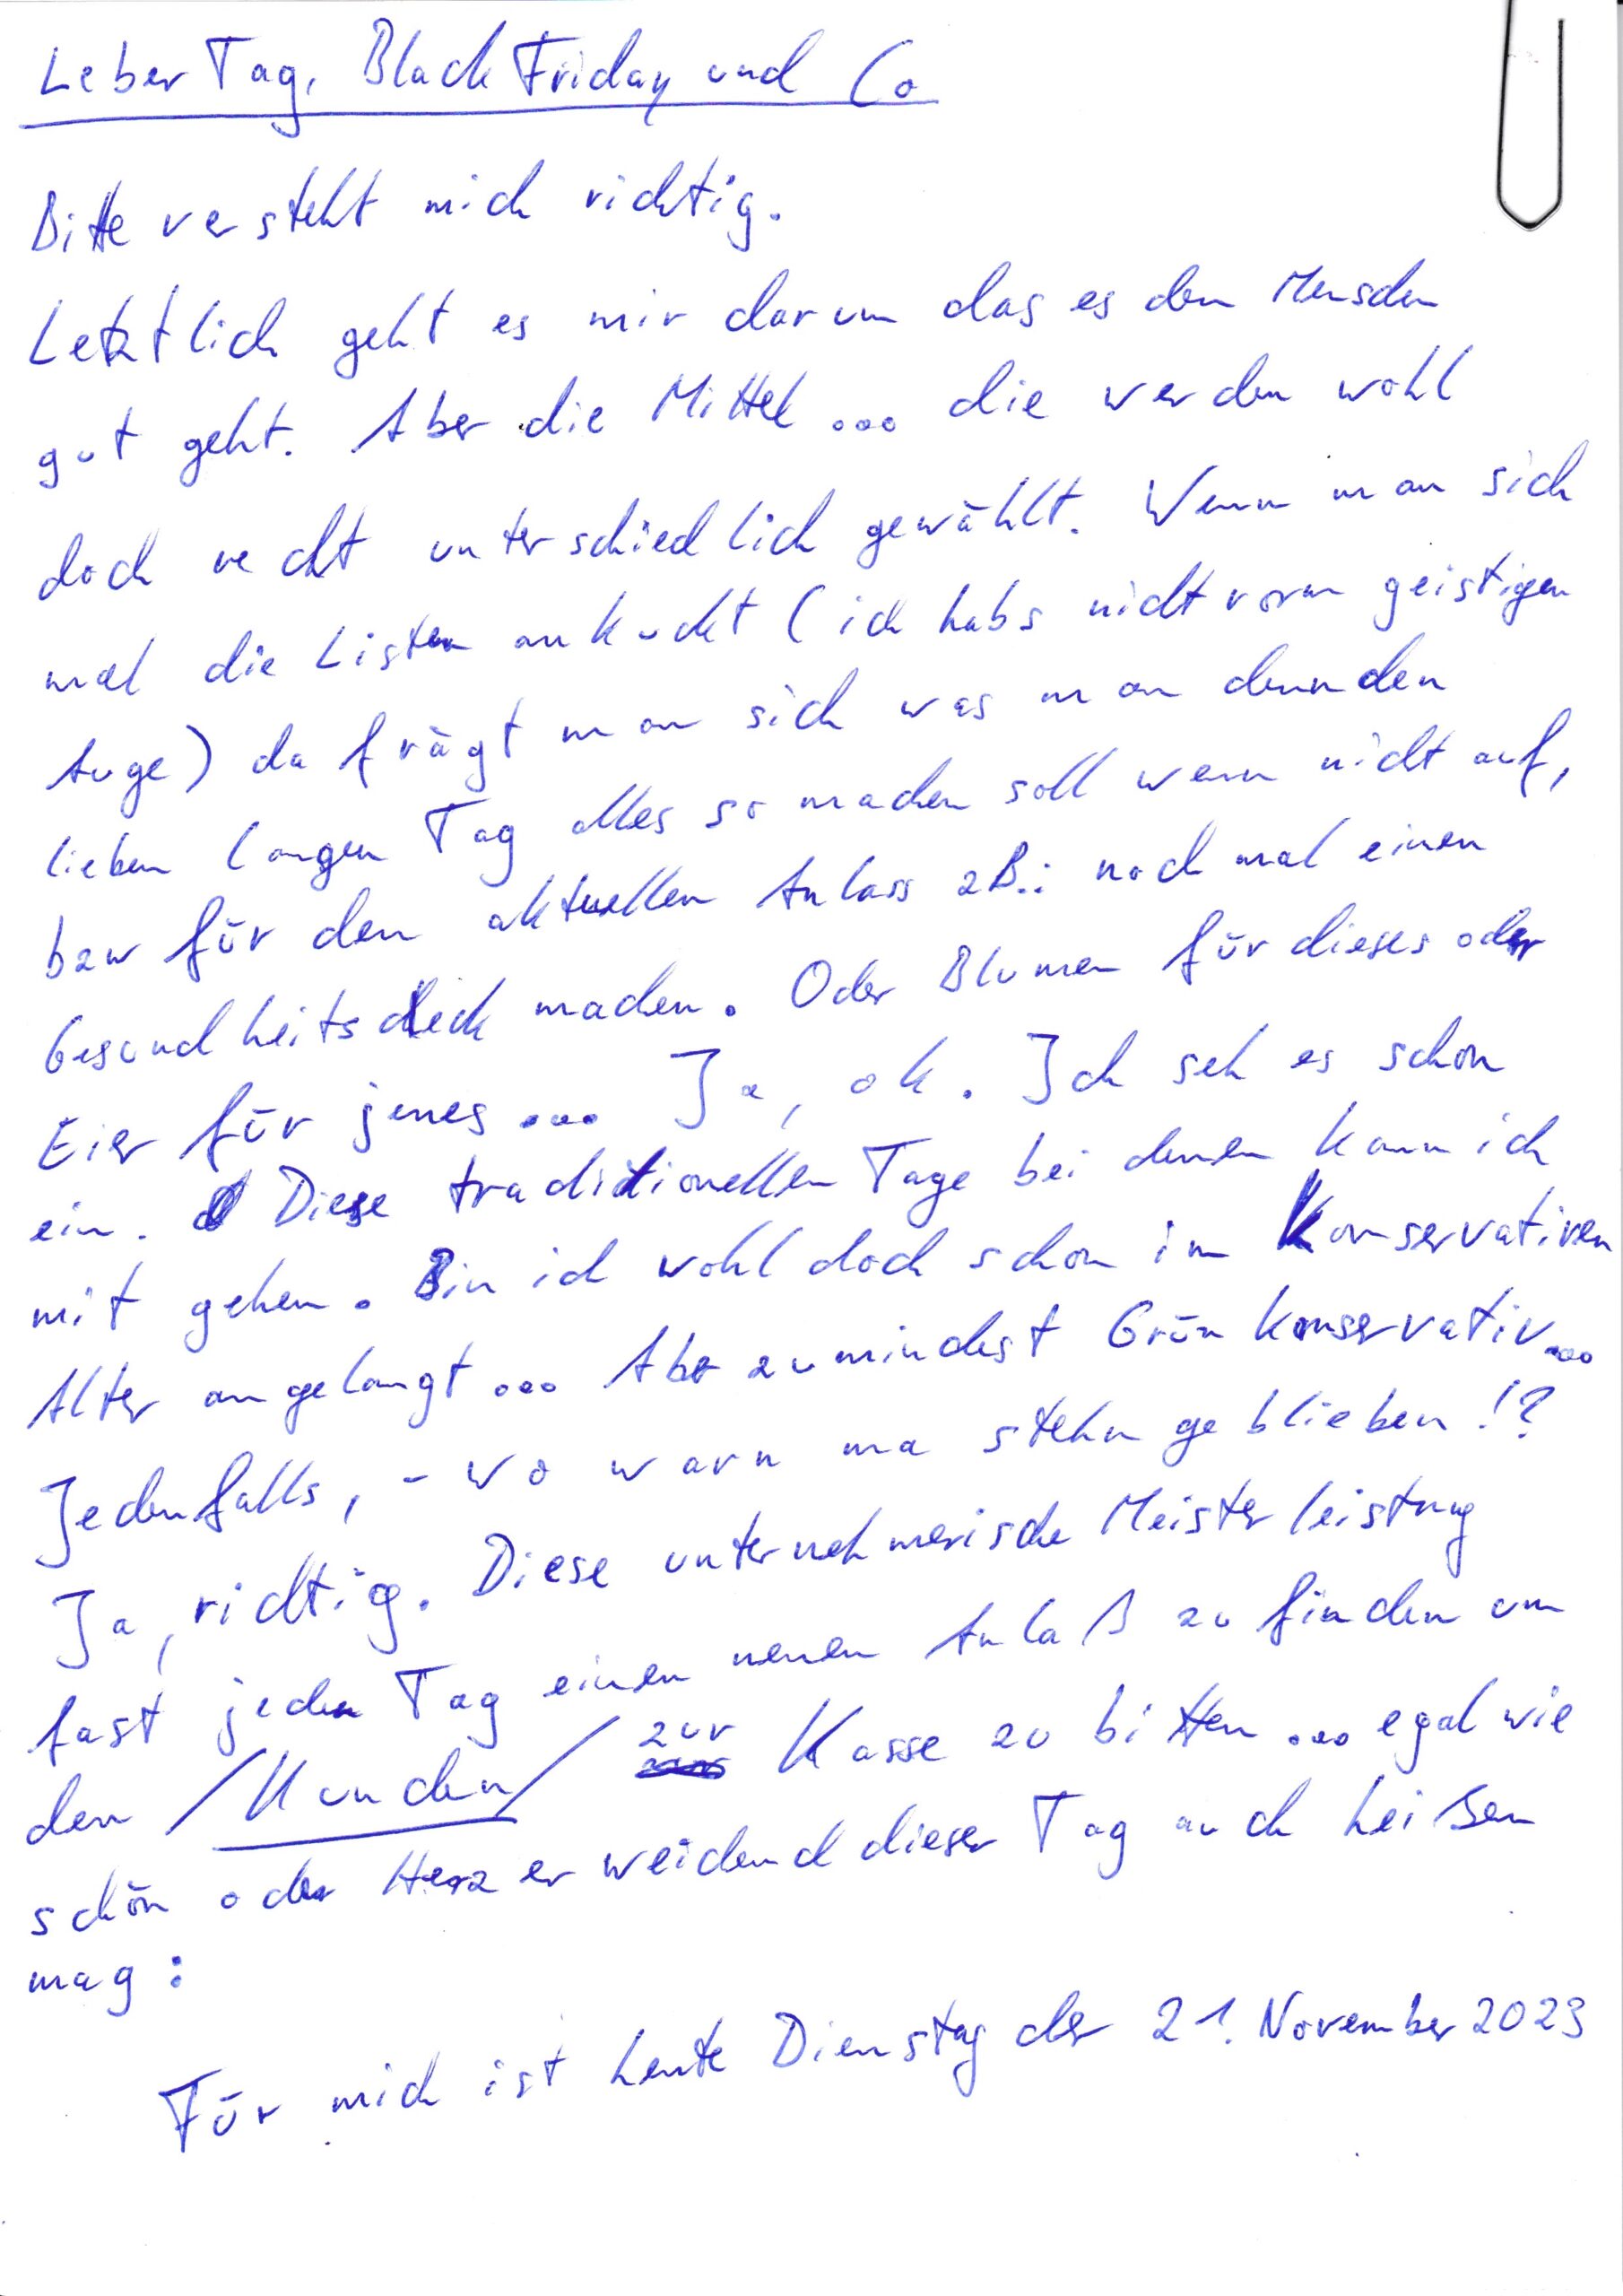 Leber Tag, Black Friday und Co
Bitte versteht mich richtig.
Letztlich geht es mir darum das es den Menschen
gut geht. Aber die Mittel ... die werden wohl
doch recht unterschiedlich gewählt. Wenn man sich
mal die Listen ankuckt (ich habs nicht vorm geistigen
Auge) da frägt man sich was man denn den
lieben langen Tag alles so machen soll wenn nicht auf,
bzw für den aktuellen Anlass zB.: noch mal einen
Gesundheitscheck machen. Oder Blumen für dieses oder
Eier für jenes ... Ja, ok. Ich seh es schon
ein. Diese traditionellen Tage bei denen kann ich
mit gehen. Bin ich wohl doch schon im Konservativen
Alter angelangt ... Aber zumindest Grün konservativ...
Jedenfalls, - wo warn ma stehn geblieben!?
Ja, richtig. Diese unternehmerische Meisterleistung
fast jeden Tag einen neuen Anlaß zu finden um
den /Kunden/ zur Kasse zu bitten ... egal wie
schön oder Herz erweichend dieser Tag auch heißen
mag:
Für mich ist heute Dienstag der 21. November 2023